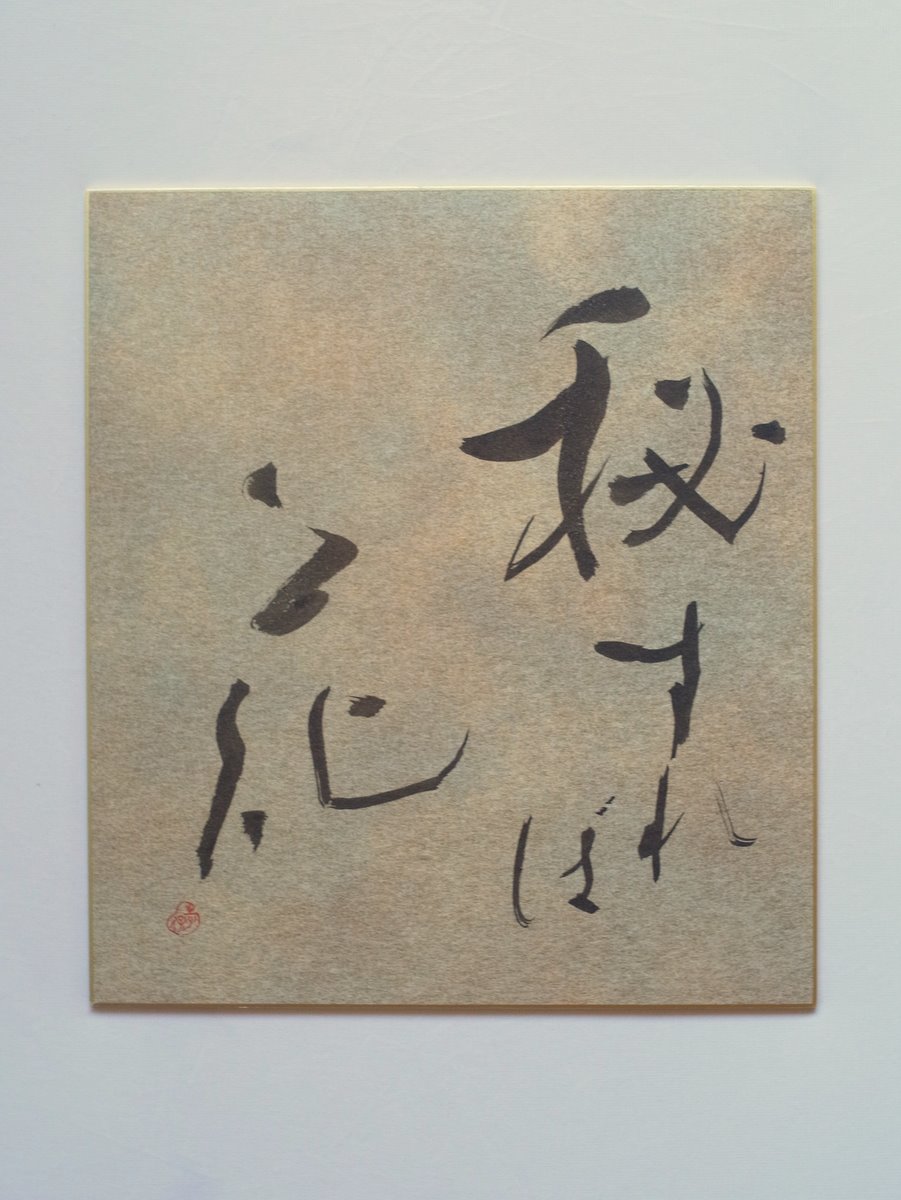 秘すれば
花